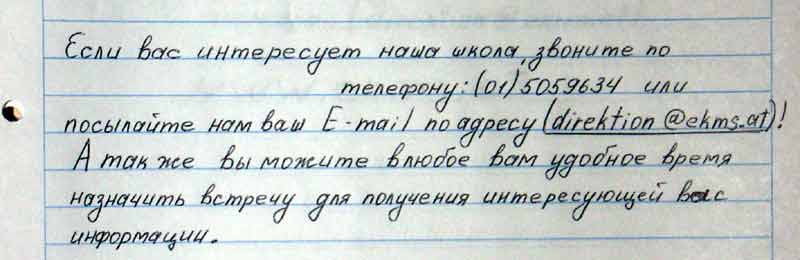 Если вас интересует наша школа, звоните по
телефону: (01) 5059634 или
посылайте нам ваш E-mail по адресу (direktion@ekms.at)!
А так же вы можите в любое вам удобное время
назначить встречу для получения интересующей вас
информации.